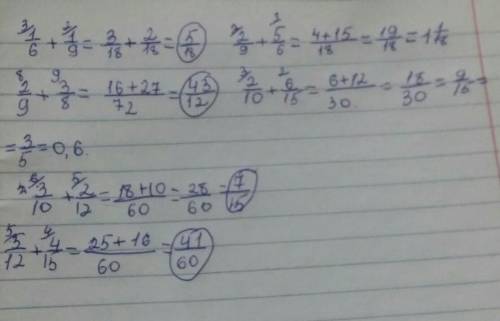 ³⁄1/6 + ²⁄1/9 = 3/18 + 2/18 = 5/18
²⁄2/9 + ³⁄5/6 = 4+15/18 = 19/18 = 1 1/18
⁸⁄2/9 + ⁹⁄3/8 = 16+27/72 = 43/12
³⁄2/10 + ²⁄6/15 = 6+12/30 = 18/30 = 9/15 =
= 3/5 = 0,6.
⁶⁄3/10 + ⁵⁄2/12 = 18+10/60 = 28/60 = 7/15
⁵⁄5/12 + ⁴⁄4/15 = 25+16/60 = 41/60